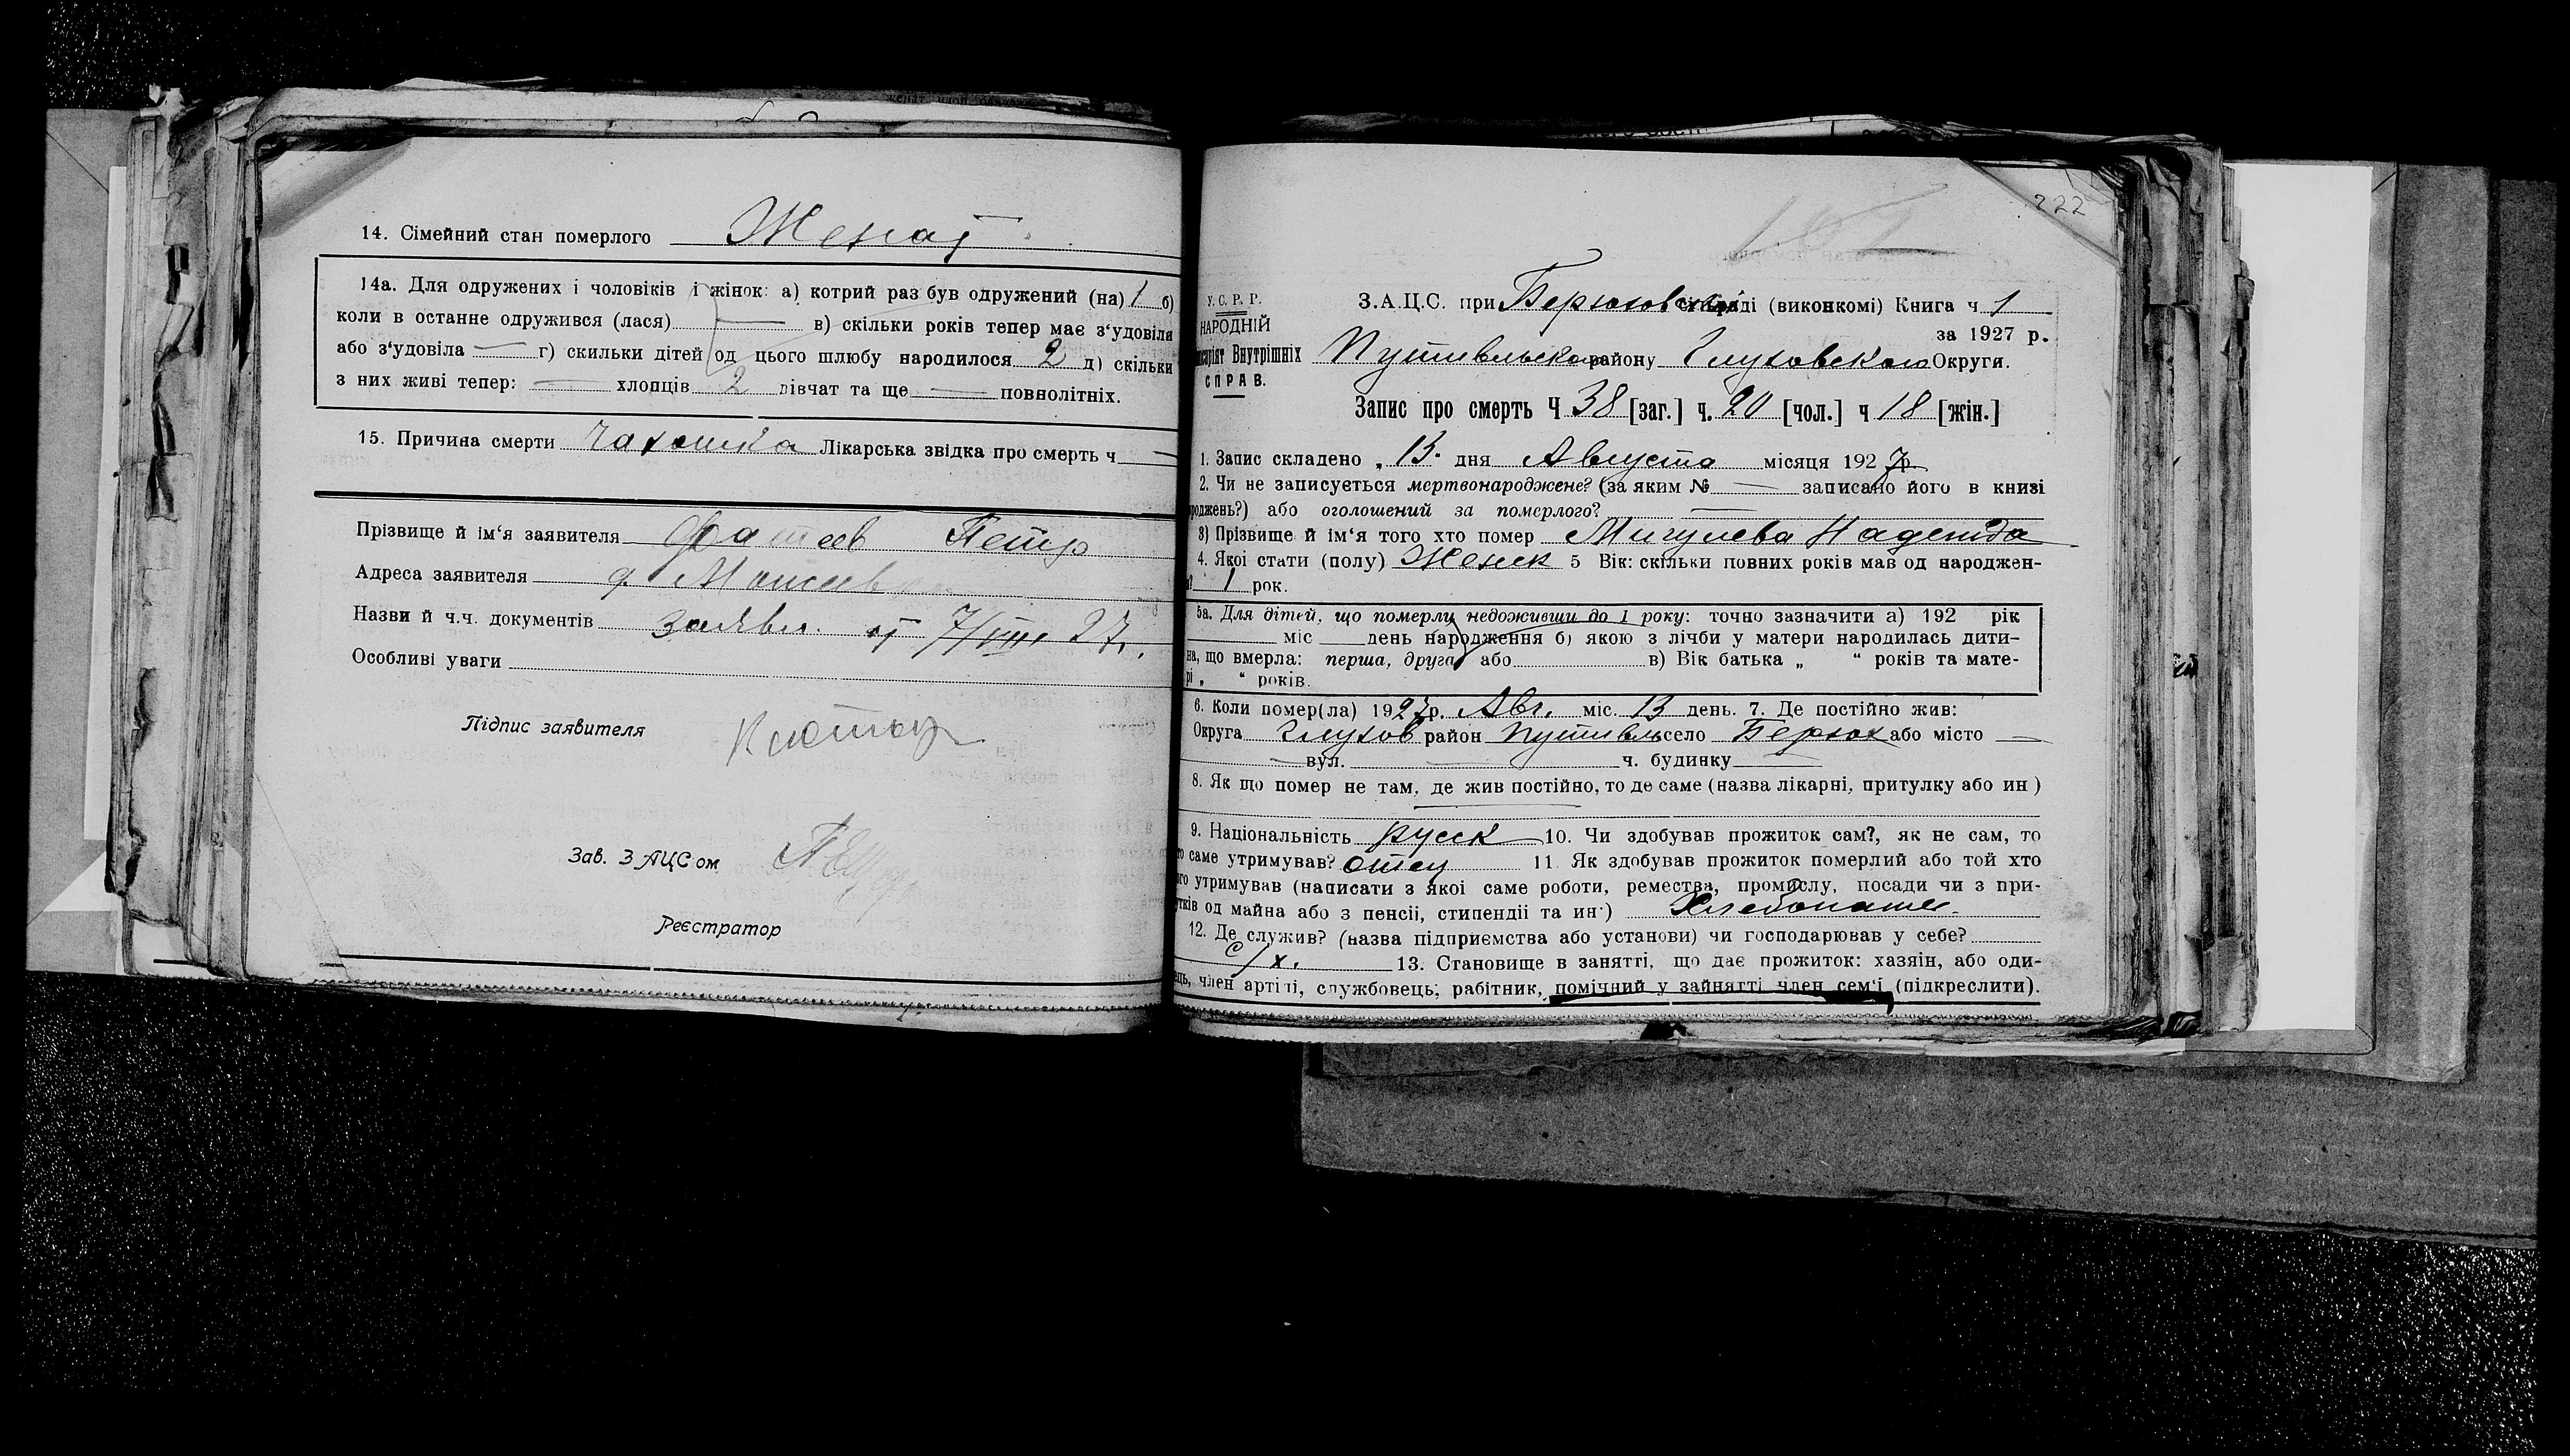 14. Сімейний стан померлого Женат
14а. Для одружених і чоловіків і жінок: а) котрий раз був одружений (на) 1 б)
коли в останнє одружився (лася) — в) скільки років тепер має з'удовіля
або з'удовіла — г) скильки дітей од цього шлюбу народилося 2 д) скільки
з них живі тепер: — хлопців 2 дівчат та ще — повнолітніх.
15. Причина смерти Чахотка Лікарська звідка про смерть ч —
Прізвище й ім'я заявителя Фатеев Петр
Адреса заявителя
Назви й ч.ч. документів заявл. от 7/VIII 27.
Особливі уваги
Підпис заявителя
Зав. ЗАЦСом
Реєстратор
222
У.С.Р.Р.
НАРОДНІЙ
Внутрішніх
СПРАВ.
З.А.Ц.С. при Берюховск. (виконкомі) Книга ч 1
за 1927 р.
Путивльского району Глуховского Округи.
Запис про смерть Ч 38 [заг.] ч. 20 [чол.] ч 18 [жін.]
1. Запис складено „ 13 дня Августа місяця 1927 р
2. Чи не записується мертвонароджене? (за яким № — записано його в книзі
роджень?) або оголошений за померлого? —
3) Прізвище й ім'я того хто помер Надежда
4. Якої стати (полу) Женск 5 Вік: скільки повних років мав од народжен-
1 рок.
5а. Для дітей, що померли недоживши до 1 року: точно зазначити а) 192 рік
міс день народження б) якою з лічби у матери народилась дити-
на, що вмерла: перша, друга, або в) Вік батька „ “ років та мате-
рі „ “ років.
6. Коли помер(ла) 1927 р. Авг. міс. 13 день. 7. Де постійно жив:
Округа Глухов район Путивль село Берюх або місто —
— вул. — ч. будинку —
8. Як що помер не там, де жив постійно, то де саме (назва лікарні, притулку або ин)
9. Національність русск 10. Чи здобував прожиток сам?, як не сам, то
то саме утримував? отец 11 Як здобував прожиток померлий або той хто
го утримував (написати з якоі саме роботи, ремества, промислу, посади чи з при-
тків од майна або з пенсіі, стипендіі та ин·) Хлебопаше.
12. Де служив? (назва підприємства або установи) чи господарював у себе?
с/х. 13. Становище в занятті, що дає прожиток: хазяін, або оди-
ець, член артілі, службовець; рабітник, помічний у зайнятті член сем'і (підкреслити).